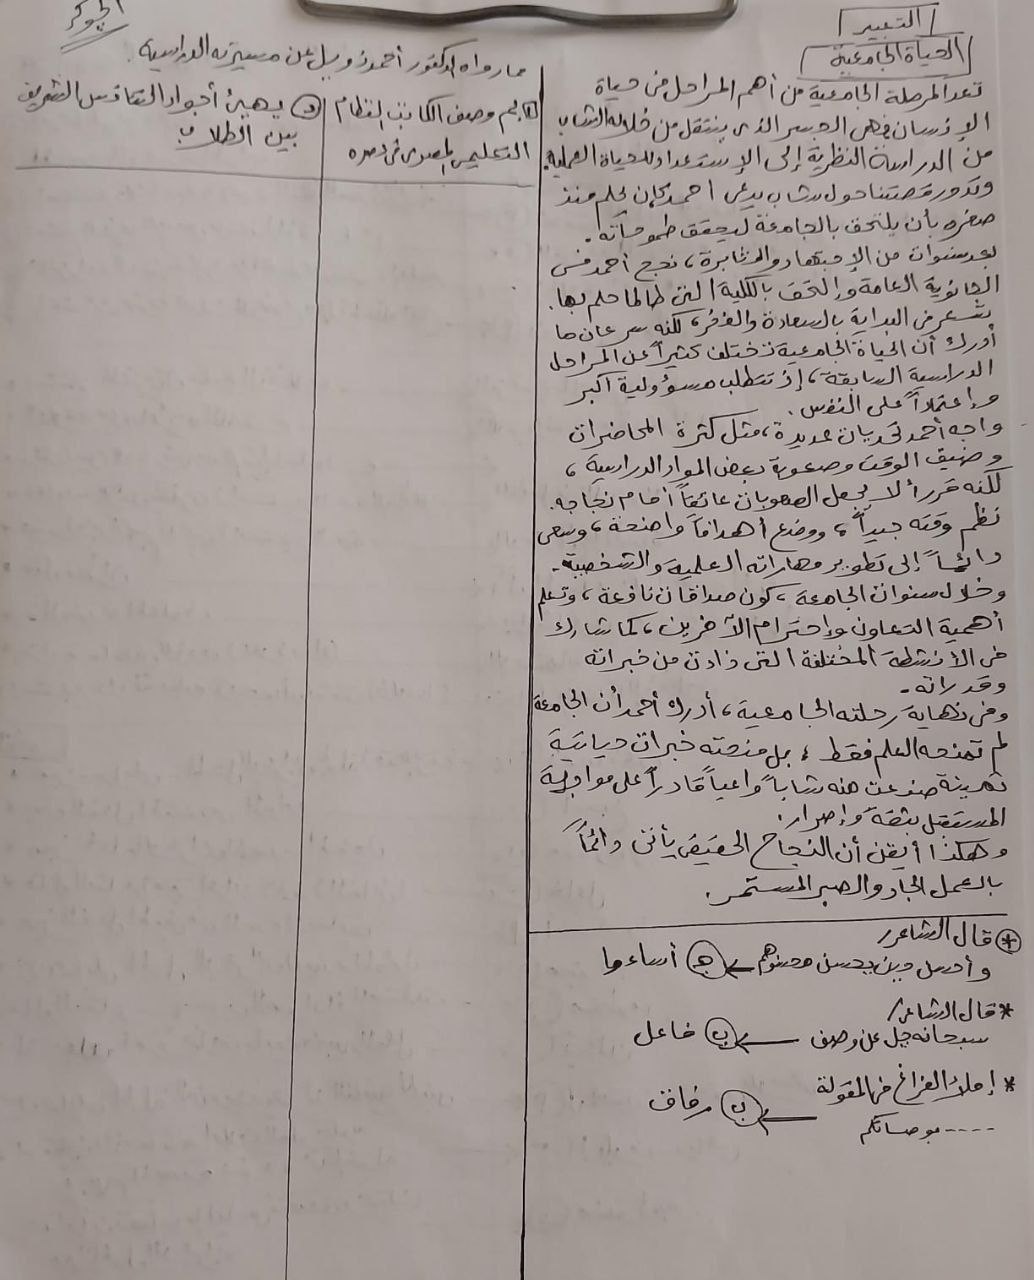 الجوكر
التعبير
الحياة الجامعية
تعد المرحلة الجامعية من أهم المراحل فى حياة
الإنسان فهى الجسر الذى ينتقل من خلاله الشاب
من الدراسة النظرية إلى الإستعداد للحياة العملية.
وتدور قصتنا حول شاب يدعى أحمد كان يحلم منذ
صغره بأن يلتحق بالجامعة ليحقق طموحاته.
بعد سنوات من الإجتهاد والمثابرة، نجح أحمد فى
الثانوية العامة وإلتحق بالكلية التى طالما حلم بها.
شعر فى البداية بالسعادة والفخر، لكنه سرعان ما
أدرك أن الحياة الجامعية تختلف كثيراً عن المراحل
الدراسية السابقة، إذ تتطلب مسؤولية أكبر
وإعتماداً على النفس.
واجه أحمد تحديات عديدة، مثل كثرة المحاضرات
وضيق الوقت وصعوبة بعض المواد الدراسية،
لكنه قرر ألا يجعل الصعوبات عائقاً أمام نجاحه.
نظم وقته جيداً، ووضع أهدافاً واضحة، وسعى
دائماً إلى تطوير مهاراته العلمية والشخصية.
وخلال سنوات الجامعة، كون صداقات نافعة، وتعلم
أهمية التعاون وإحترام الآخرين، كما شارك
فى الأنشطة المختلفة التى زادت من خبراته
وقدراته.
وفى نهاية رحلته الجامعية، أدرك أحمد أن الجامعة
لم تمنحه العلم فقط، بل منحته خبرات حياتية
ثمينة صنعت منه شاباً واعياً قادراً على مواجهة
المستقبل بثقة وإصرار.
وهكذا أيقن أن النجاح الحقيقى يأتى دائماً
بالعمل الجاد والصبر المستمر.
* قال الشاعر/
وأجمل حين يحسن محسنوهم ← جـ أساءوا
* قال الشاعر/
سبحانه جل عن وصف ← ب فاعل
* إملاء الفراغ فى المقولة
---- بوصاتكم ← ب رفاق
مما رواه الدكتور أحمد زويل عن مسيرته الدراسية.
بم وصف الكاتب النظام
التعليمى المصرى فى عصره
د يهيئ أجواء التنافس الشريف
بين الطلاب